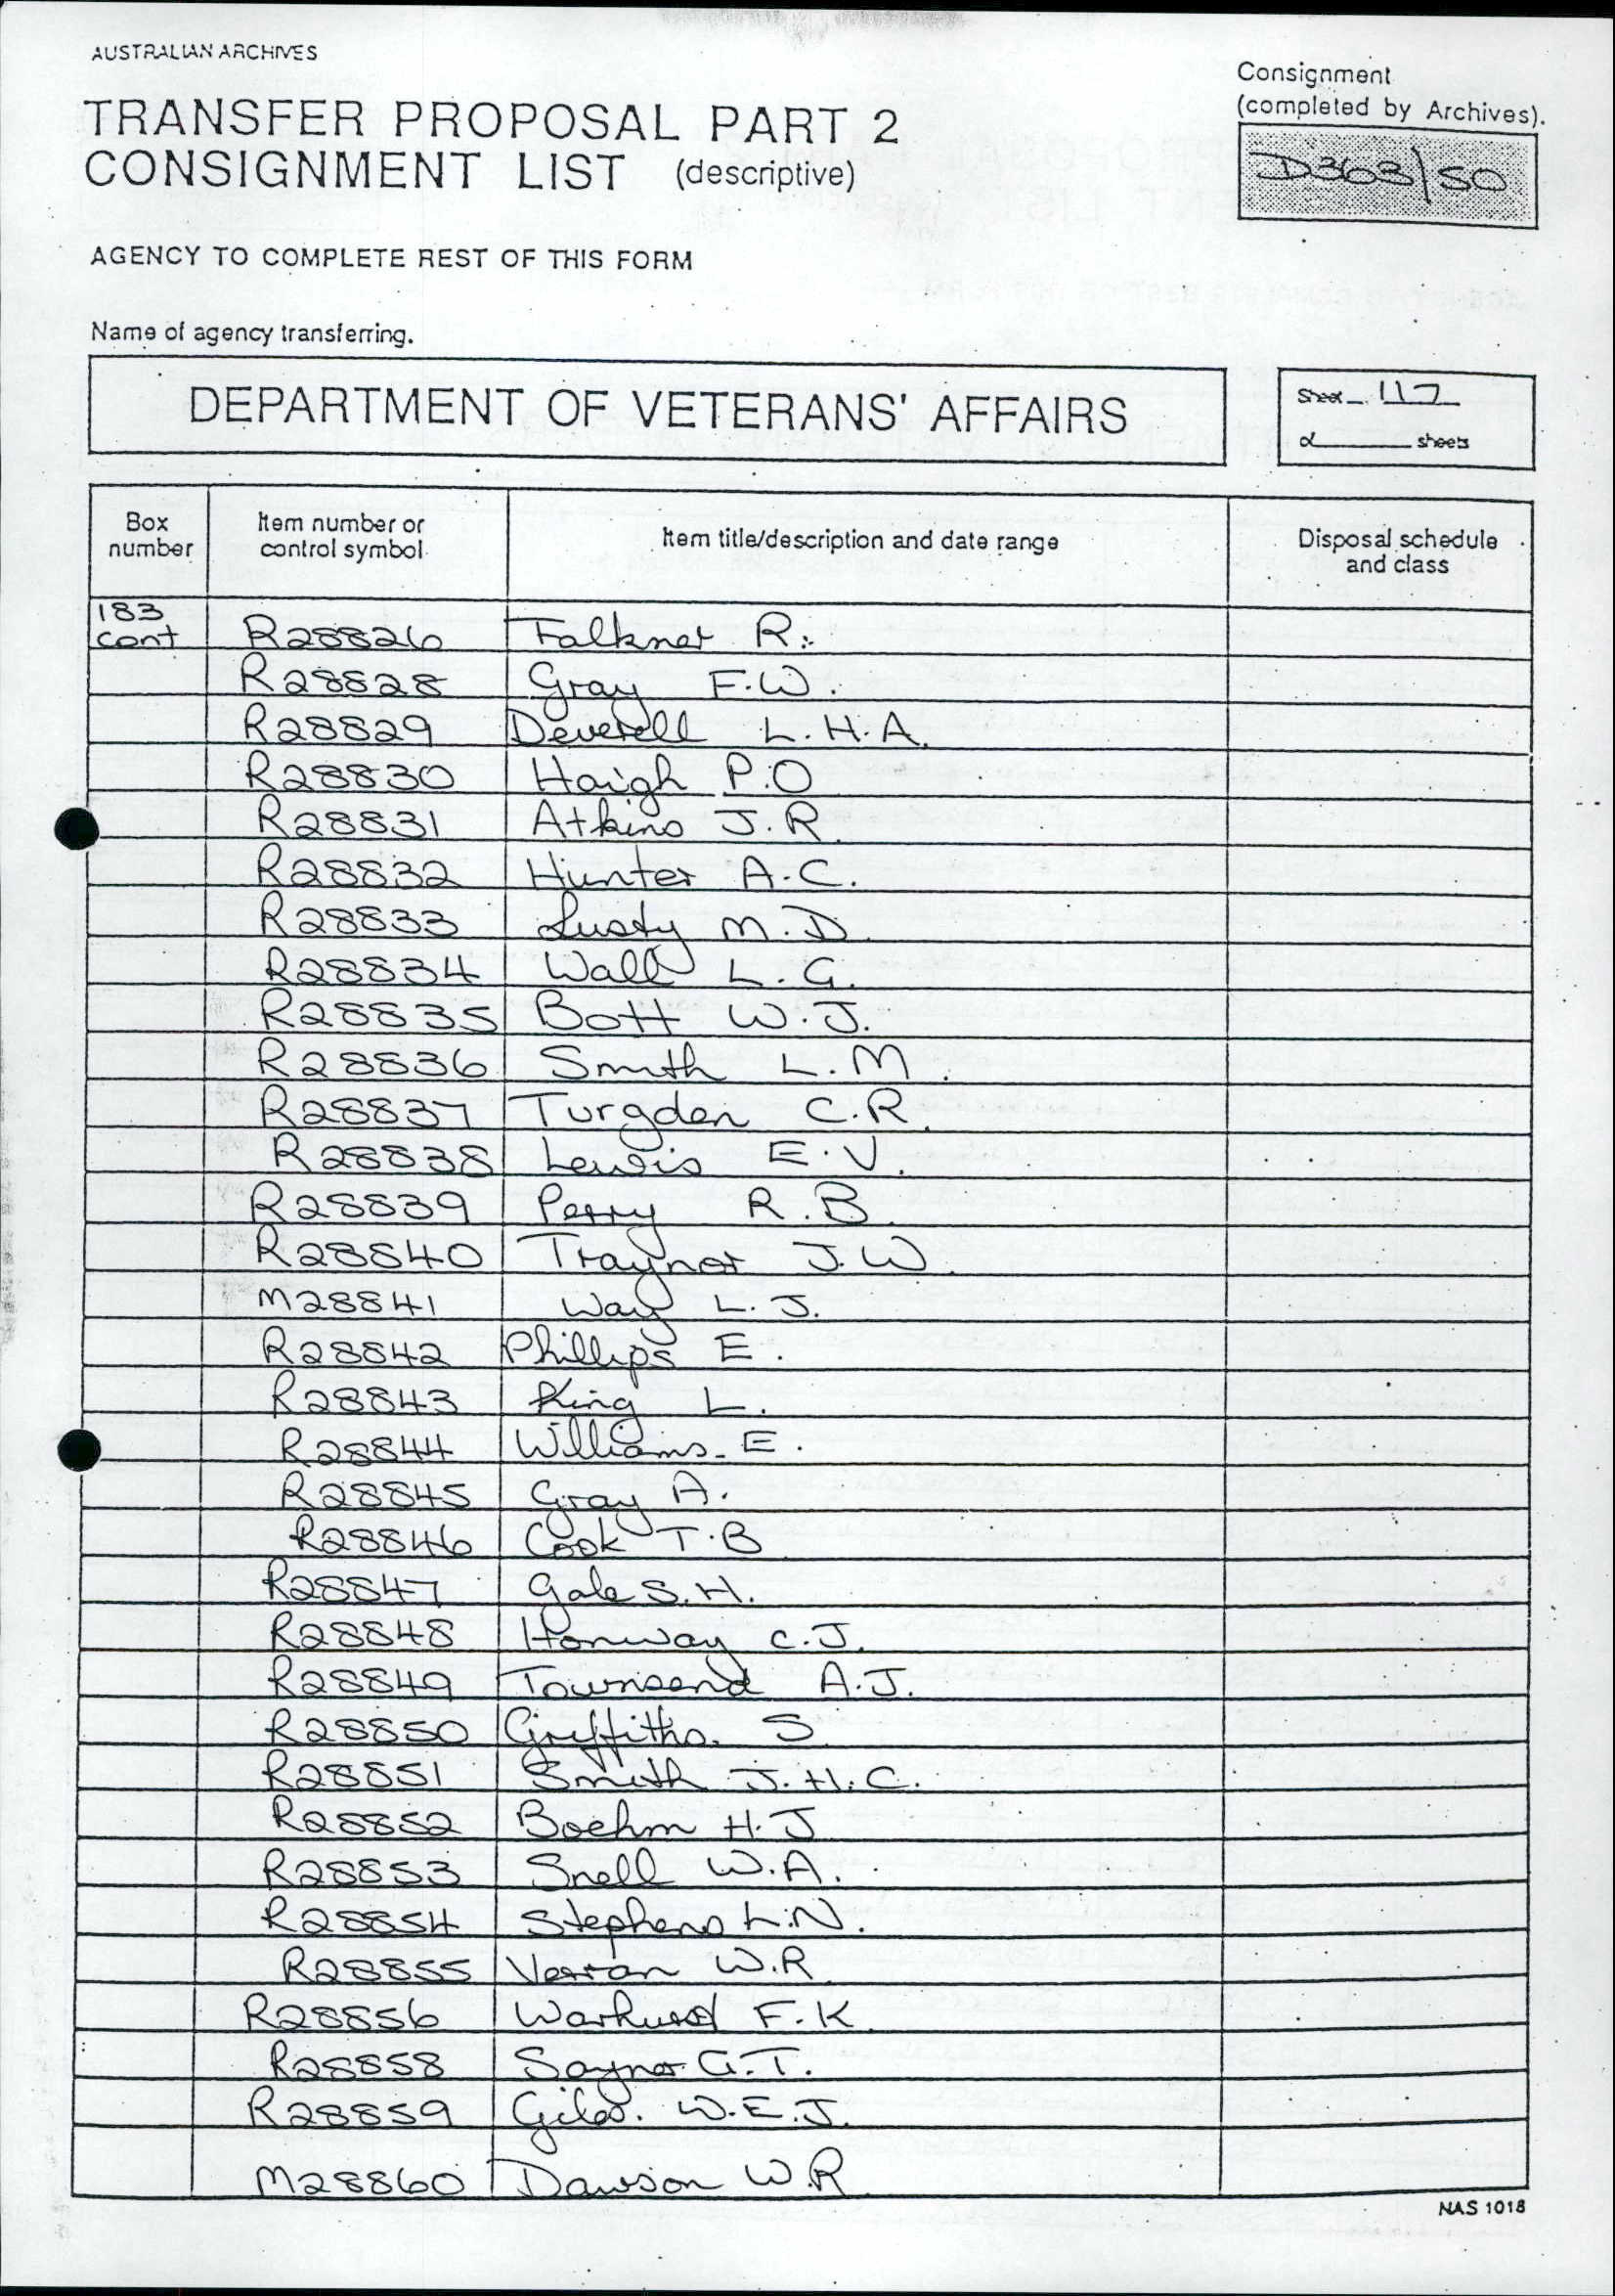 AUSTRALIAN ARCHIVES
TRANSFER PROPOSAL PART 2
CONSIGNMENT LIST (descriptive)
Consignment
(completed by Archives).
D363/50
AGENCY TO COMPLETE REST OF THIS FORM
Name of agency transferring.
DEPARTMENT OF VETERANS' AFFAIRS
Sheet 117
of sheets
Box number Item number or control symbol Item title/description and date range Disposal schedule and class
183 cont R28826 Falkner R.
R28828 Gray F.W.
R28829 Deverell L.H.A.
R28830 Haigh P.O
R28831 Atkins J.R
R28832 Hunter A.C.
R28833 Lusty M.D.
R28834 Wall L.G.
R28835 Bott W.J.
R28836 Smith L.M.
R28837 Turgden C.R.
R28838 Lewis E.V.
R28839 Perry R.B.
R28840 Traynor J.W.
M28841 Way L.J.
R28842 Phillips E.
R28843 King L.
R28844 Williams E.
R28845 Gray A.
R28846 Cook T.B
R28847 Gale S.H.
R28848 Hanway C.J.
R28849 Townsend A.J.
R28850 Griffiths. S
R28851 Smith J.H.C.
R28852 Boehm H.J
R28853 Snell W.A.
R28854 Stephens L.N.
R28855 Verran W.R
R28856 F.K.
R28858 Saynor G.T.
R28859 Giles. W.E.J.
M28860 Dawson W.R
NAS 1018